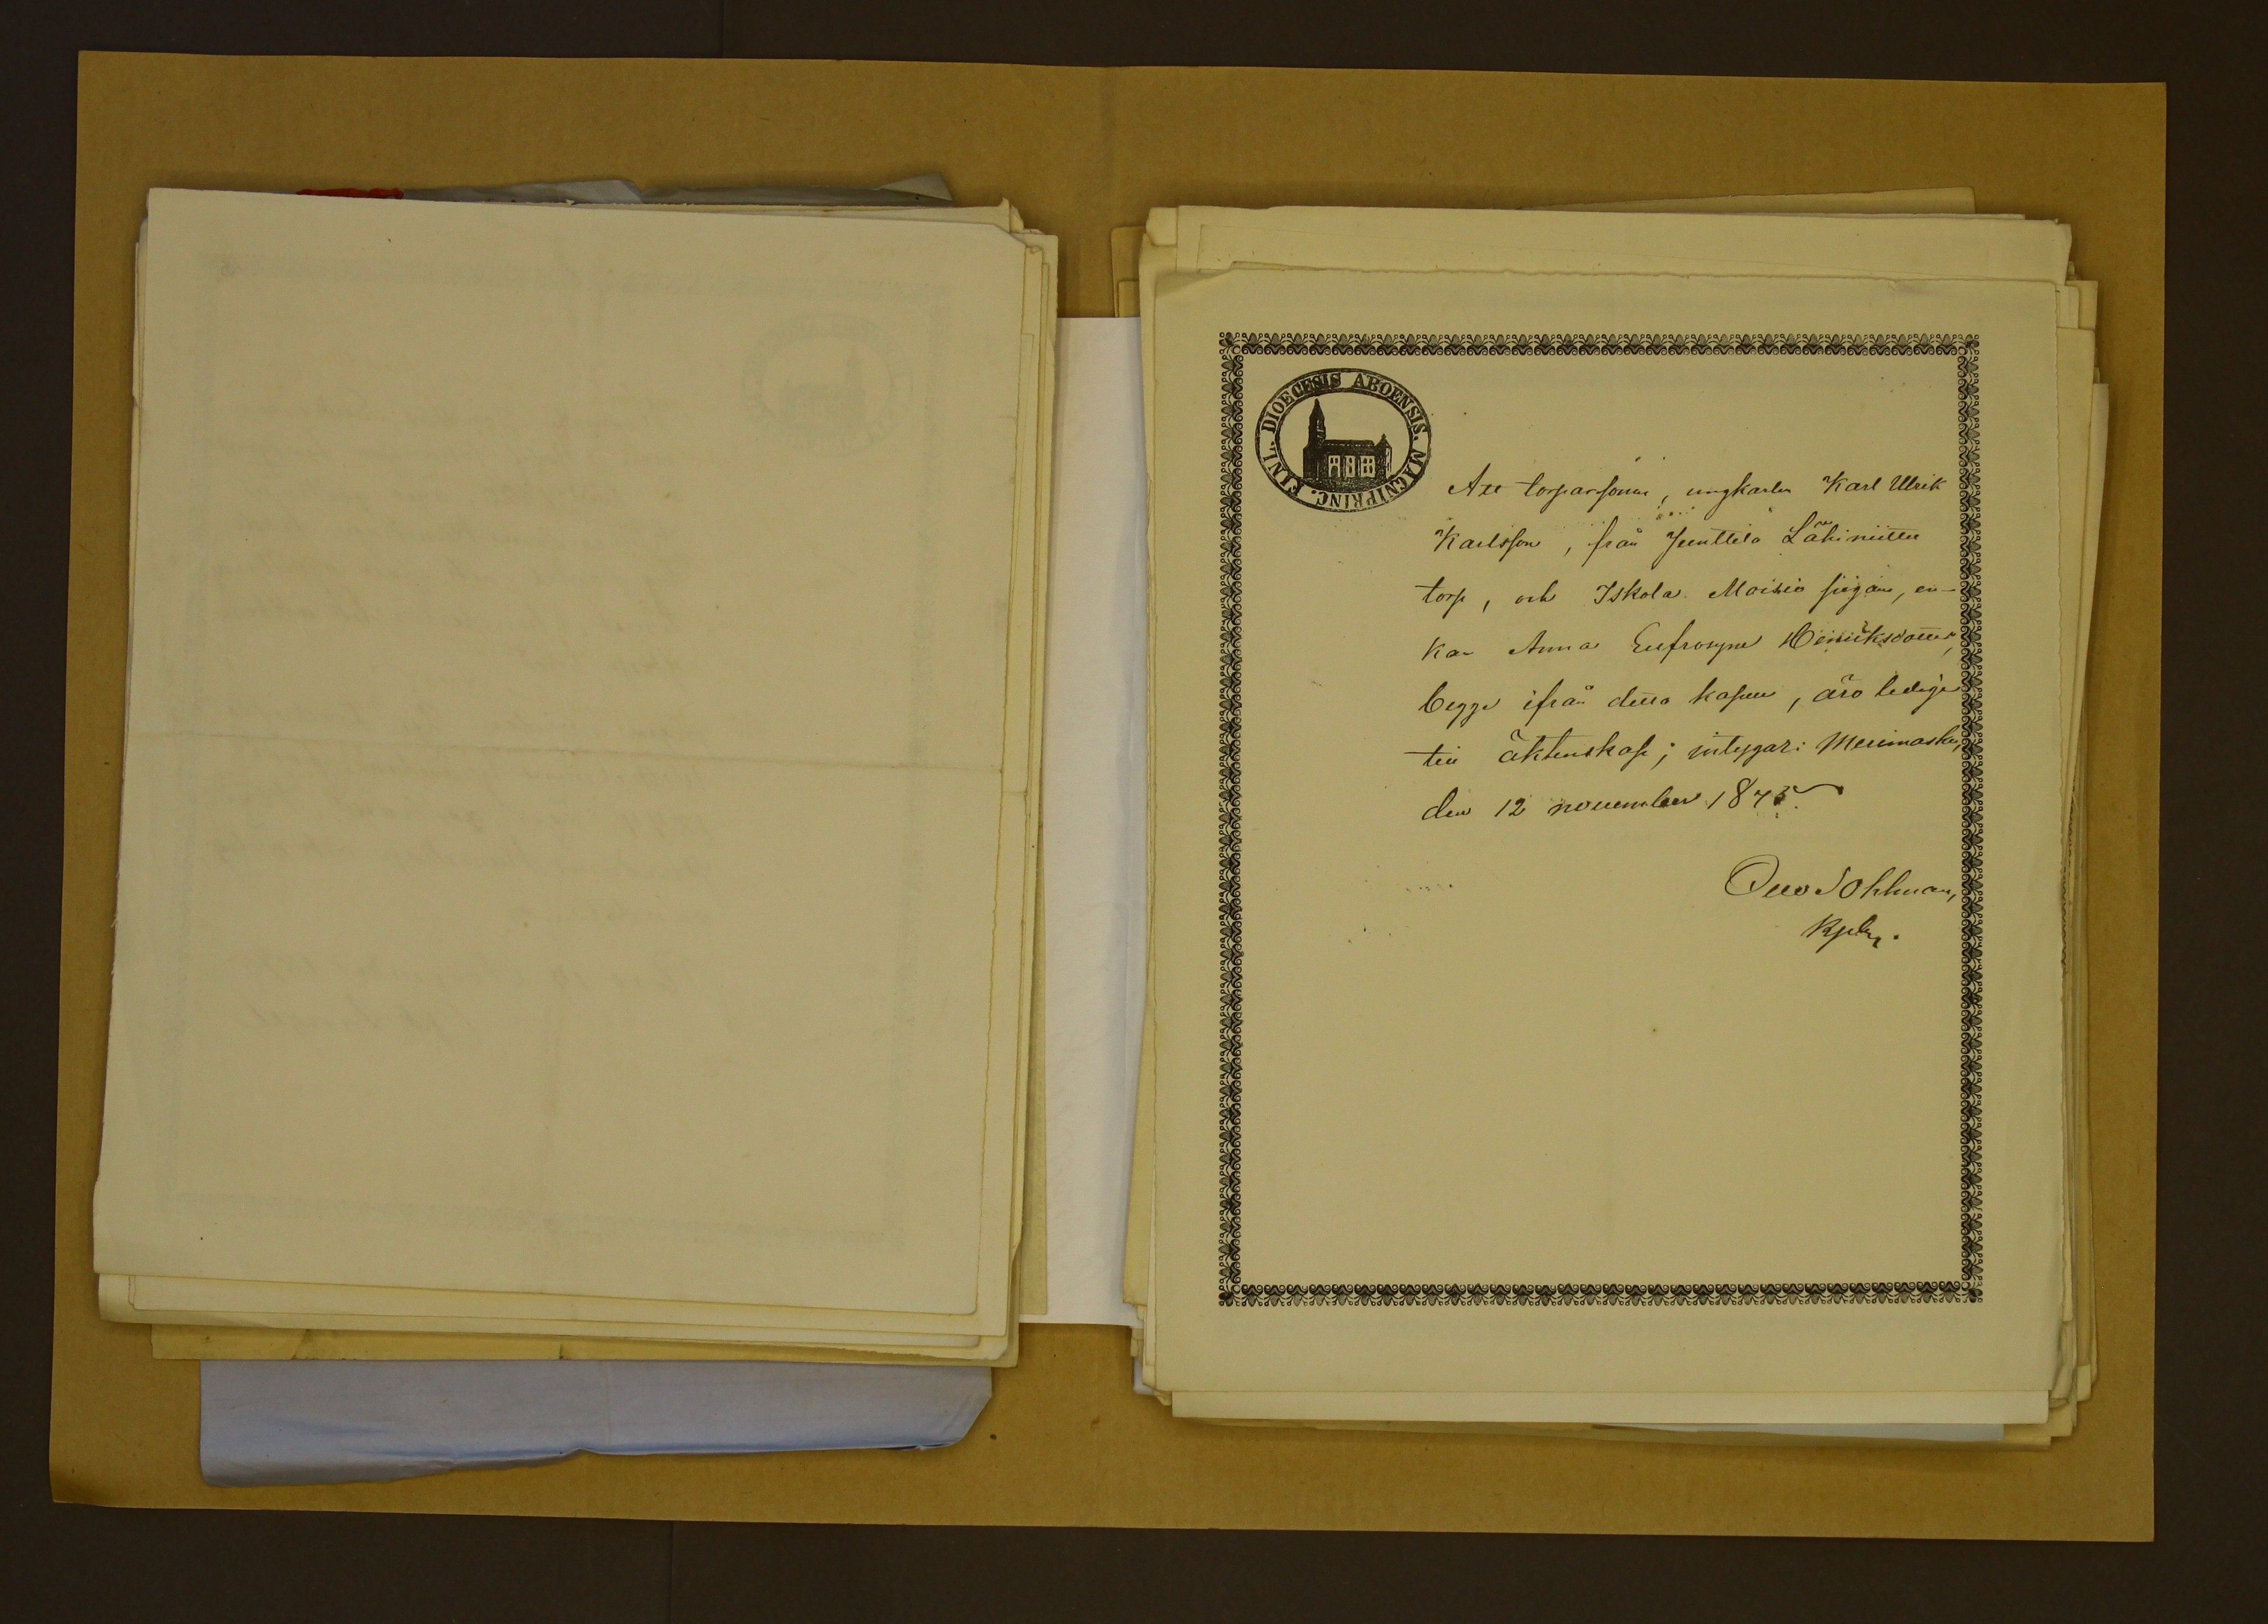 DIOECESIS ABOENSIS. MAGNI PRINC. FINL.
Att torparsonen, ungkarlen Karl Ulrik
Karlsson, från Junttila Lähiniittu
torp, och Iskola Moisio pigan, en-
kan Anna Eufrosyne Henriksdotter,
begge ifrån detta kapell, äro lediga
till äktenskap; intygar: Merimasku,
den 12 november 1875.
Otto Sohlman,
Kpln.